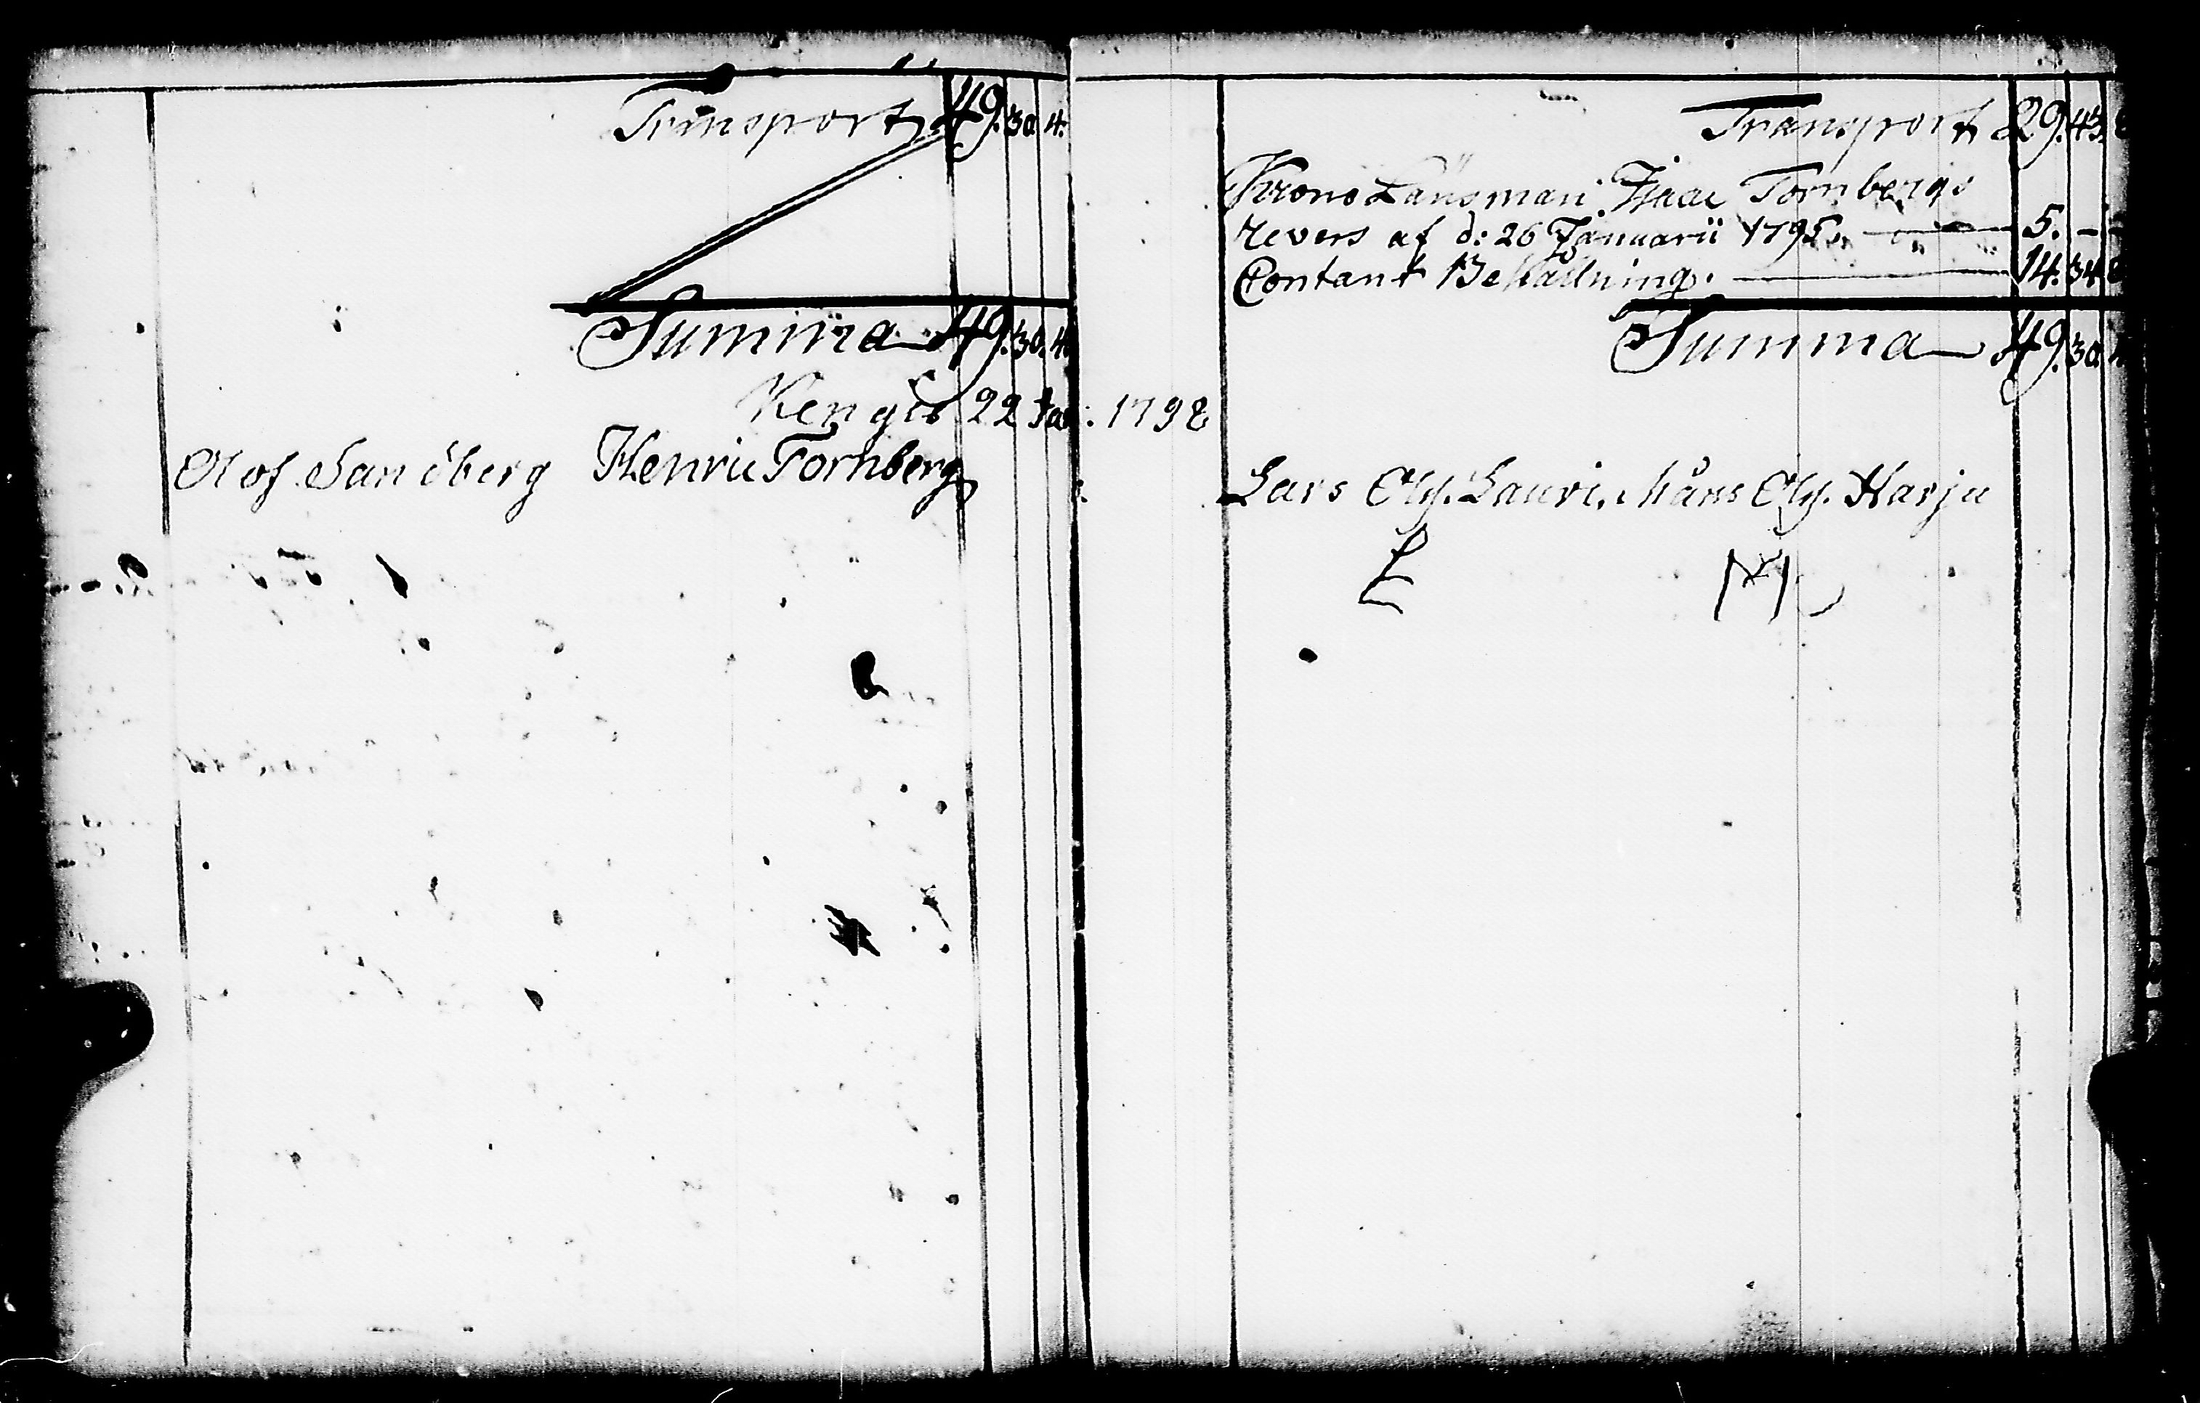 Transport 49. 30. 4.
Summa 49. 30. 4
Kengis 22 Jan: 1798
Olof Sandberg Henric Fornberg
Transport 29. 43.
Krono Länsman Isaac Fornbergs
revers af d: 26 Januarii 1795. 5. – –
Contant Behållning. 14. 34
Summa 49. 30.
Lars Ols. Lauri. Måns Ols. Harju
L M